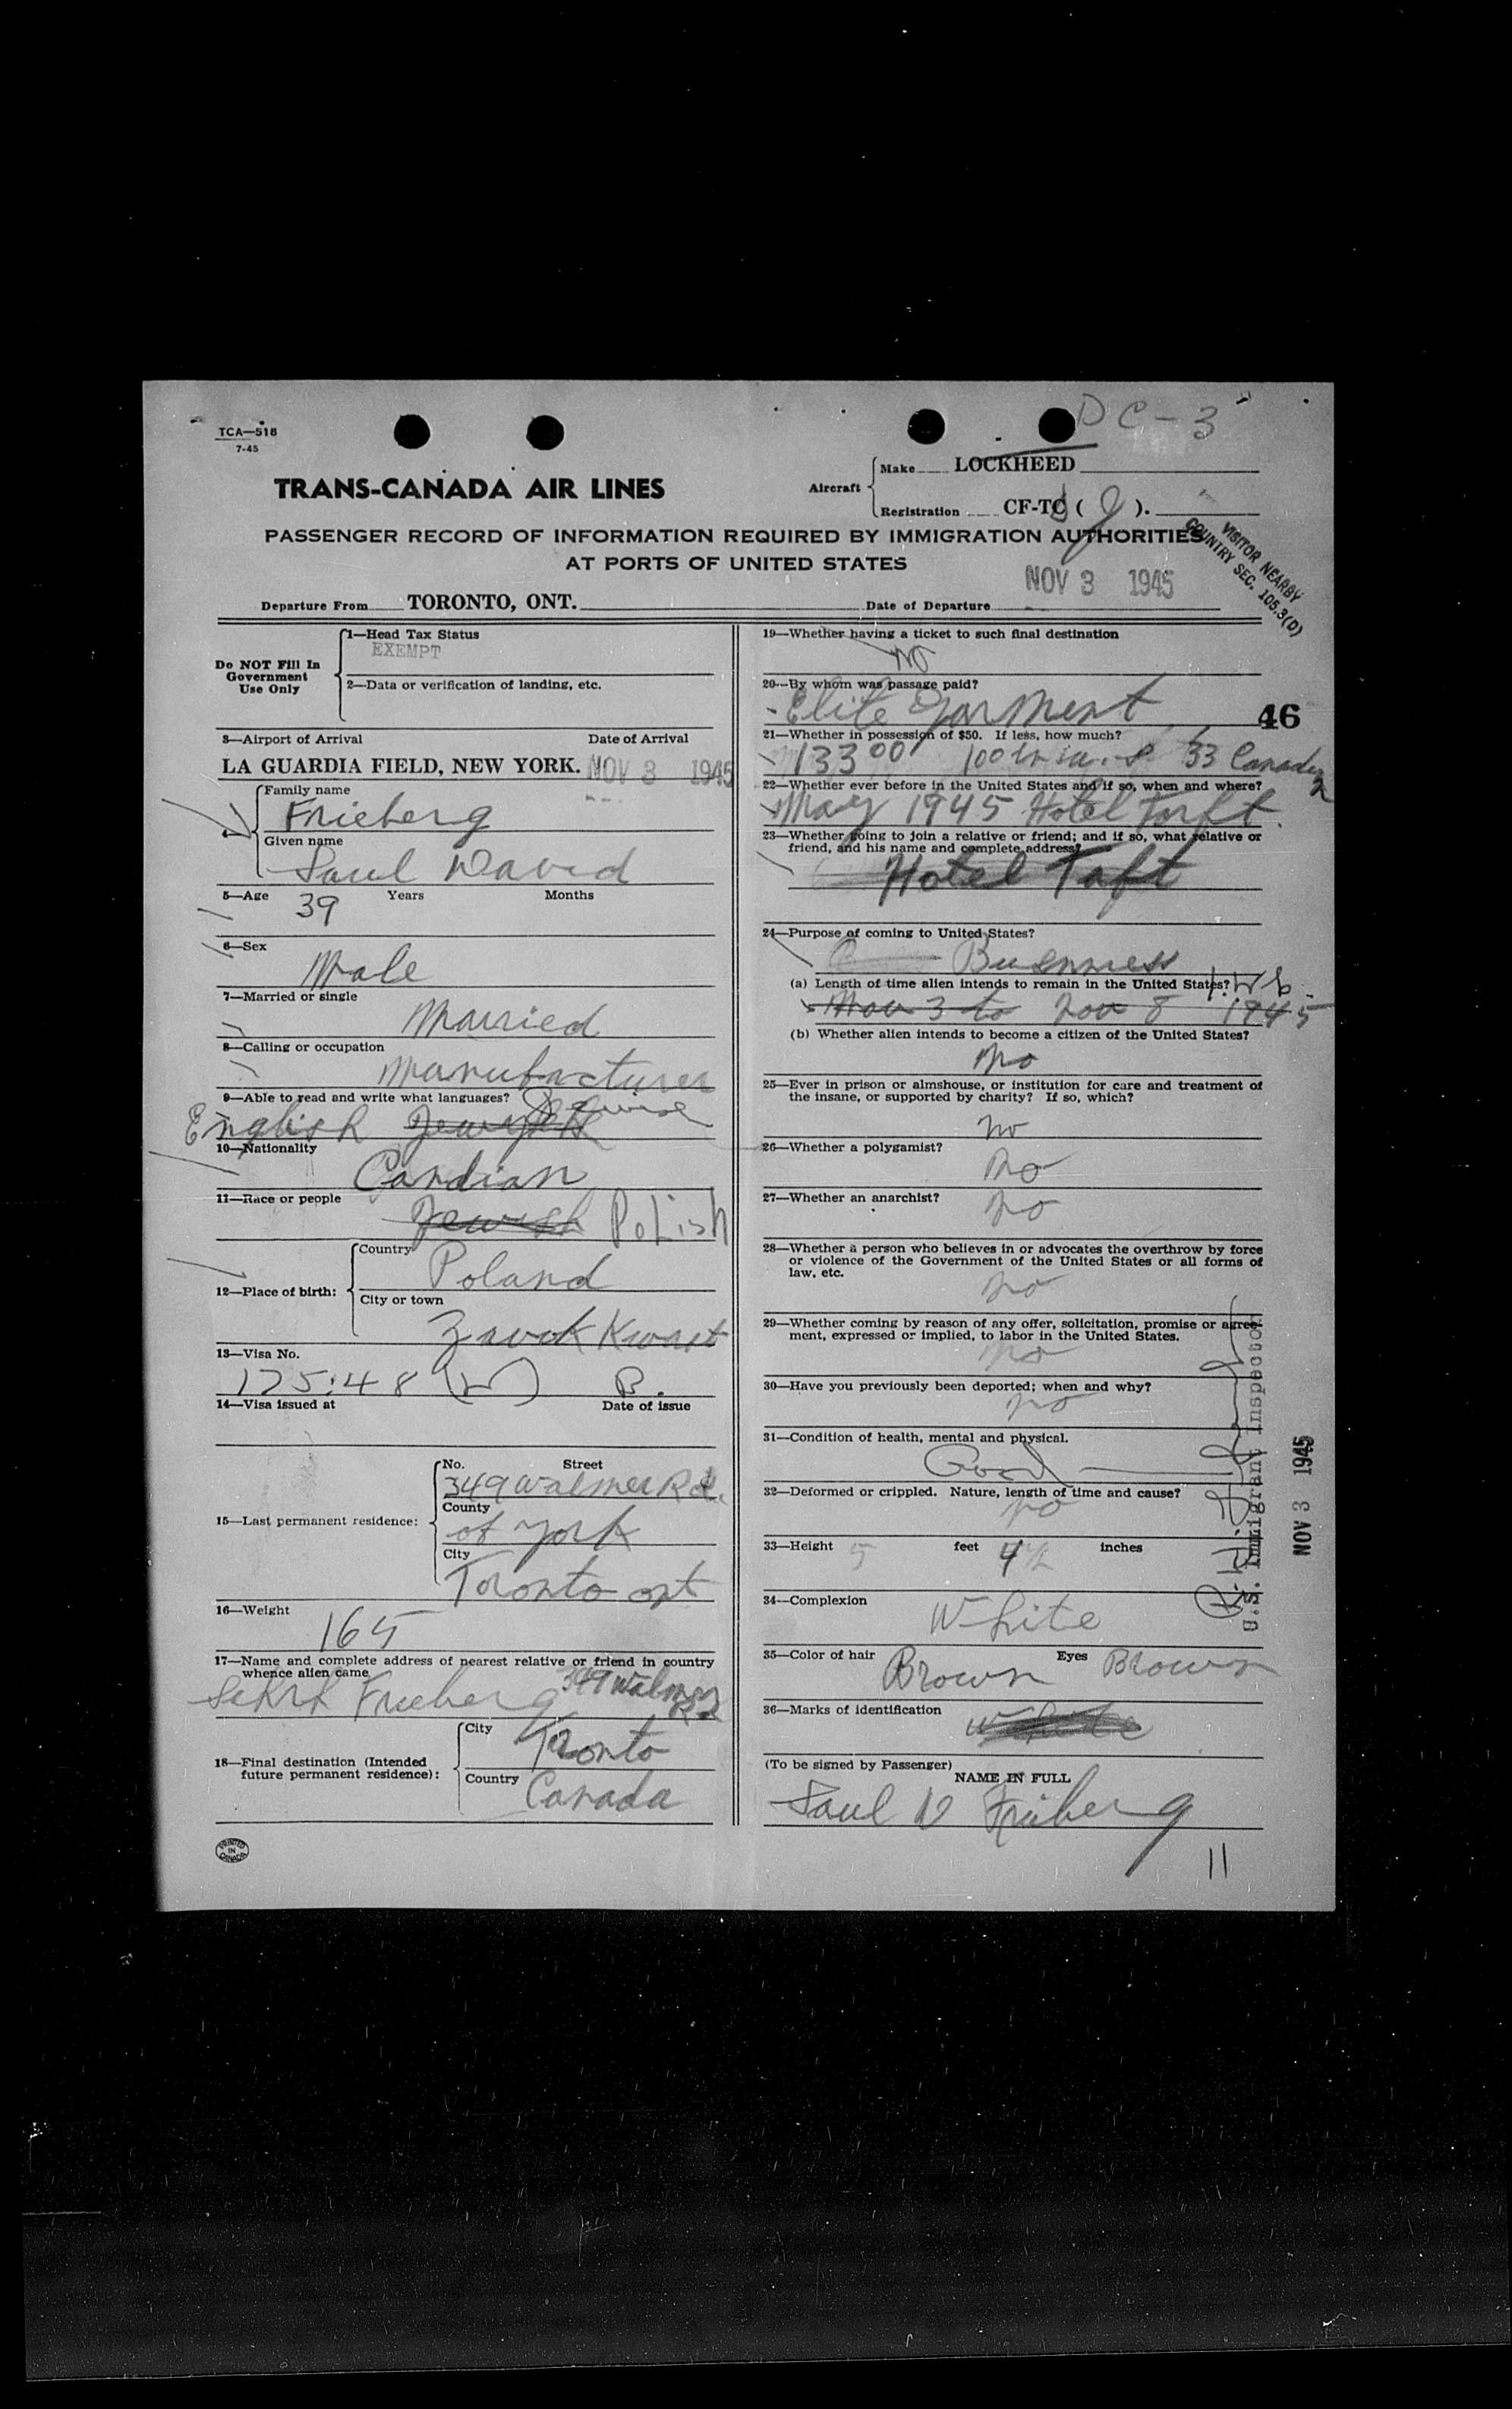 DC-3
TCA—518
7-45
TRANS-CANADA AIR LINES
Aircraft
Make LOCKHEED
Registration CF-TC ( ).
PASSENGER RECORD OF INFORMATION REQUIRED BY IMMIGRATION AUTHORITIES
AT PORTS OF UNITED STATES
VISITOR NEARBY
COUNTRY SEC. 105.3(D)
NOV 3 1945
Departure From TORONTO, ONT. Date of Departure
Do NOT Fill In
Government
Use Only
1—Head Tax Status
EXEMPT
2—Data or verification of landing, etc.
3—Airport of Arrival Date of Arrival
LA GUARDIA FIELD, NEW YORK. NOV 3 1945
Family name
Frieberg
4—
Given name
Saul David
5—Age 39 Years Months
6—Sex
Male
7—Married or single
Married
8—Calling or occupation
Manufacturer
9—Able to read and write what languages?
English Jewish
10—Nationality
Candian
11—Race or people
Jewish Polish
12—Place of birth:
Country
Poland
City or town
13—Visa No.
175:48 (W) B.
14—Visa issued at Date of issue
15—Last permanent residence:
No. Street
349 Walmer Rd.
County
of York
City
Toronto ont
16—Weight
165
17—Name and complete address of nearest relative or friend in country
whence alien came
Frieberg 349 Walmer Rd
18—Final destination (Intended
future permanent residence):
City
Toronto
Country
Canada
PRINTED
IN
CANADA
19—Whether having a ticket to such final destination
No
20—By whom was passage paid?
Elite Garment
46
21—Whether in possession of $50. If less, how much?
133 00 100 in u.s 33 Canadian
22—Whether ever before in the United States and if so, when and where?
May 1945 Hotel Taft
23—Whether going to join a relative or friend; and if so, what relative or
friend, and his name and complete address?
Hotel Taft
24—Purpose of coming to United States?
Buisnness
(a) Length of time alien intends to remain in the United States? 1 Wk.
Nov 3 to Nov 8 1945
(b) Whether alien intends to become a citizen of the United States?
No
25—Ever in prison or almshouse, or institution for care and treatment of
the insane, or supported by charity? If so, which?
no
26—Whether a polygamist?
no
27—Whether an anarchist?
no
28—Whether a person who believes in or advocates the overthrow by force
or violence of the Government of the United States or all forms of
law, etc.
no
29—Whether coming by reason of any offer, solicitation, promise or agree-
ment, expressed or implied, to labor in the United States.
no
30—Have you previously been deported; when and why?
no
31—Condition of health, mental and physical.
Good
32—Deformed or crippled. Nature, length of time and cause?
no
33—Height 5 feet 4½ inches
34—Complexion
White
35—Color of hair Brown Eyes Brown
36—Marks of identification
White
(To be signed by Passenger)
NAME IN FULL
Saul D Frieberg
11
U.S. Immigrant Inspector
NOV 3 1945